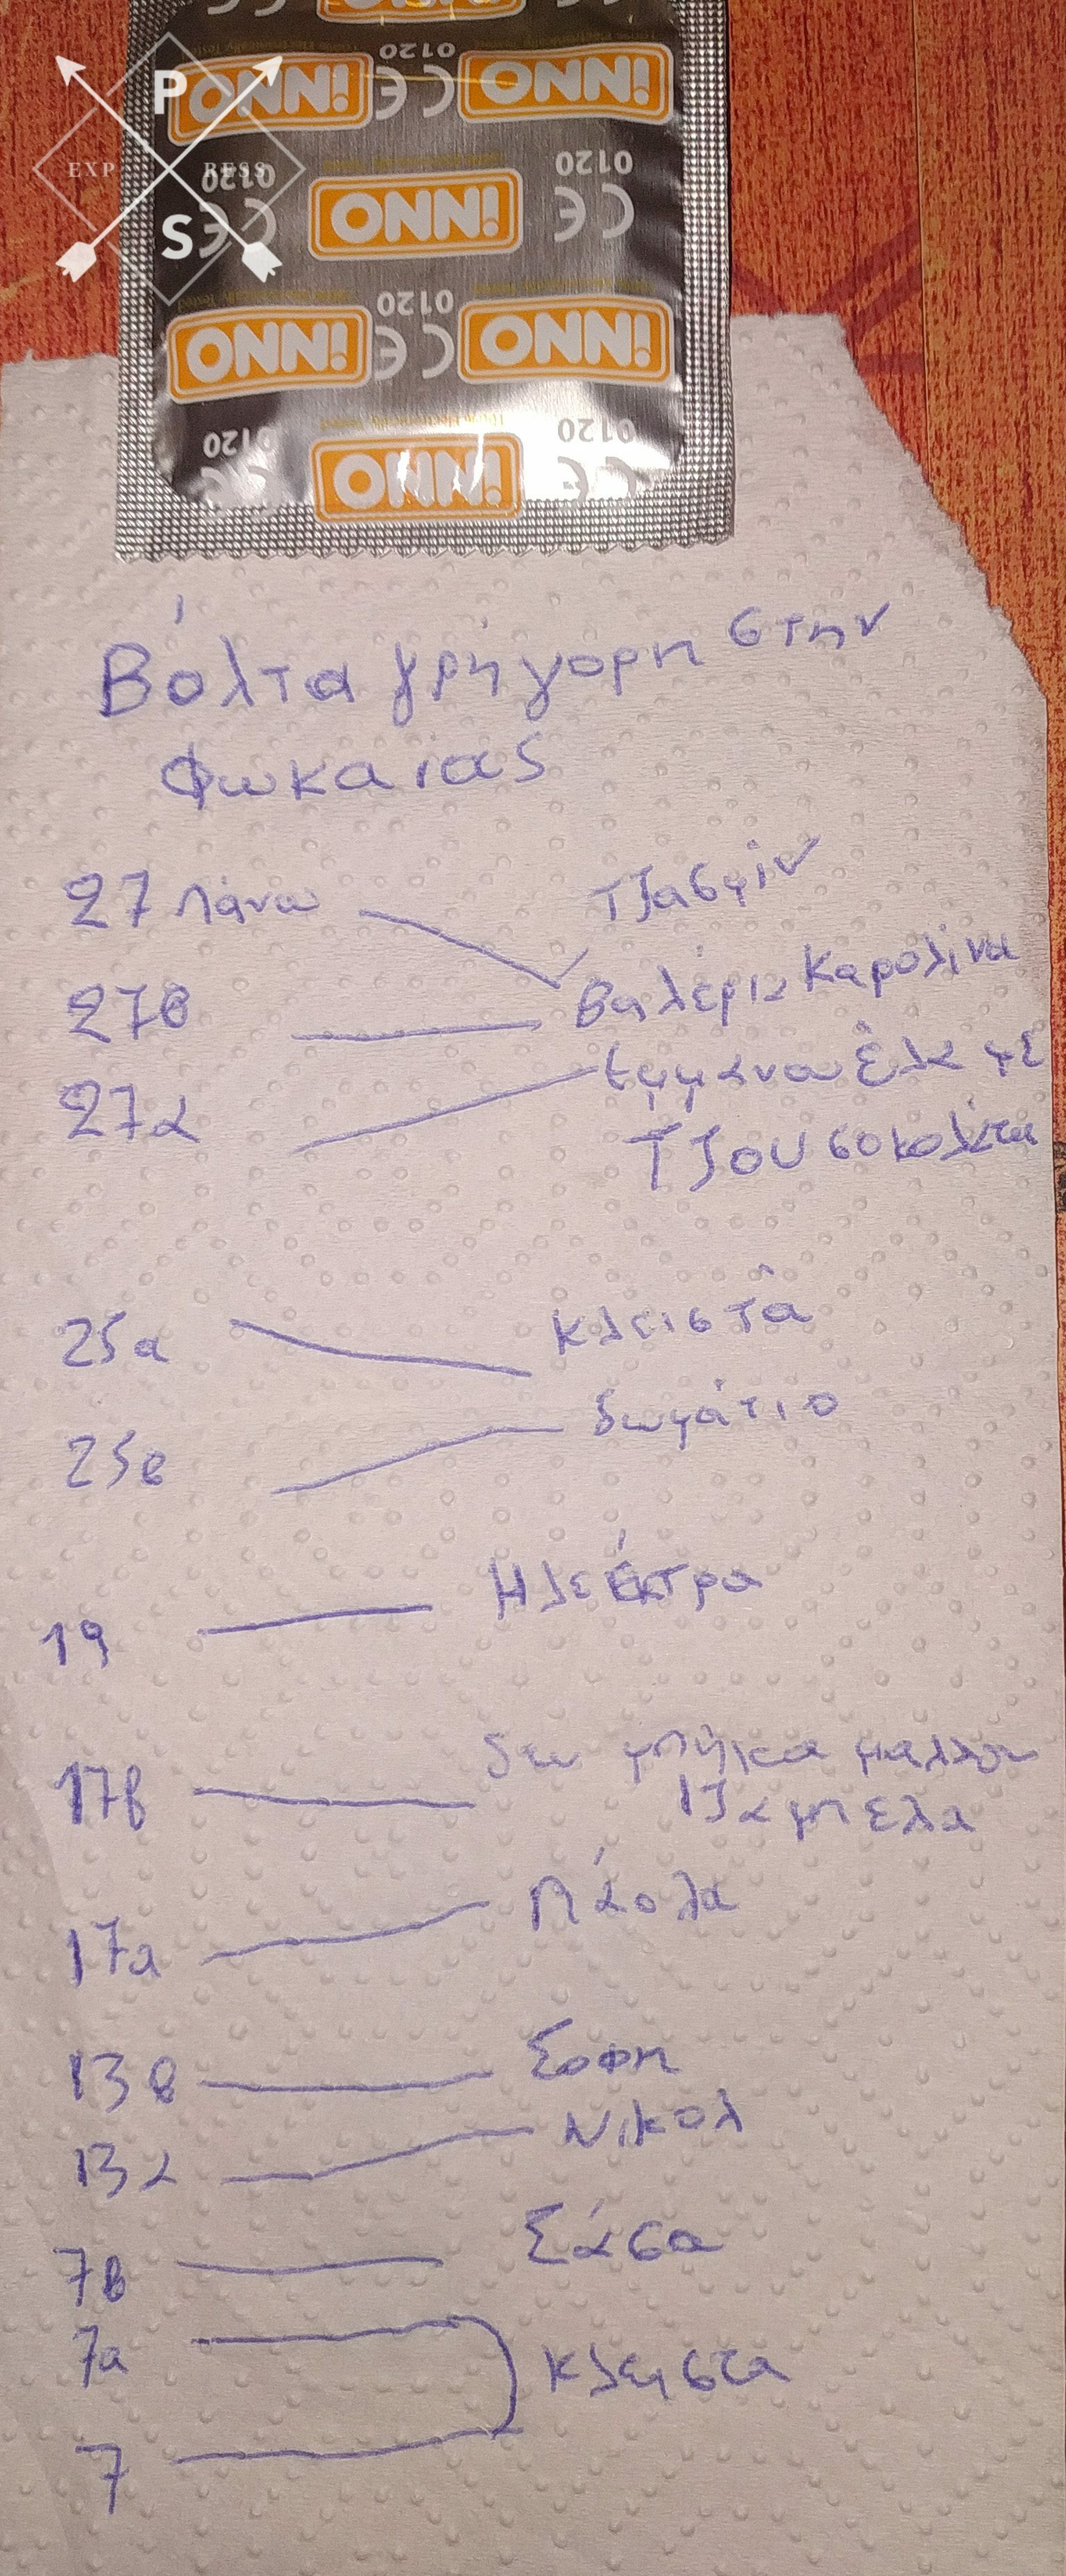 P
EXP RESS
S
0120
iNNO CE iNNO
0120 0120
CE iNNO CE
0120
iNNO CE iNNO
0120 100% Electronically Tested 0120
CE iNNO CE
Βόλτα γρήγορη στην
Φωκαιας
27 πάνω Τζασμίν
27β Βαλέρια Καρολίνα
27α έλα με
Τζου σοκολάτα
25α κλειστά
25β δωμάτιο
19 Ηλέκτρα
17β δεν μπήκα μαλλον
Ιζαμπελα
17α Πάολα
13β Σοφη
13α Νικολ
7β Σάσα
7α
κλειστα
7